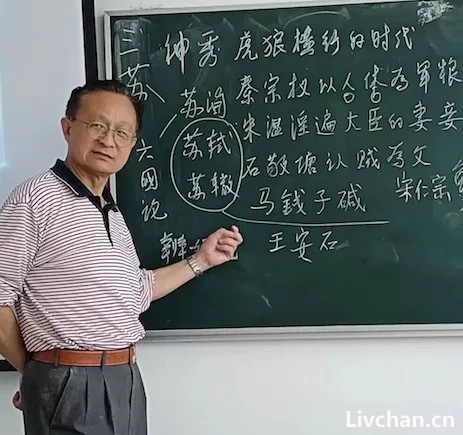 三苏
六國论
苏洵
苏轼
苏辙
神秀 虎狼横行的时代
秦宗权以人体为军粮
朱温淫遍大臣的妻妾
石敬塘认贼为父
马钱子碱
宋仁宗
王安石
Livchan.cn